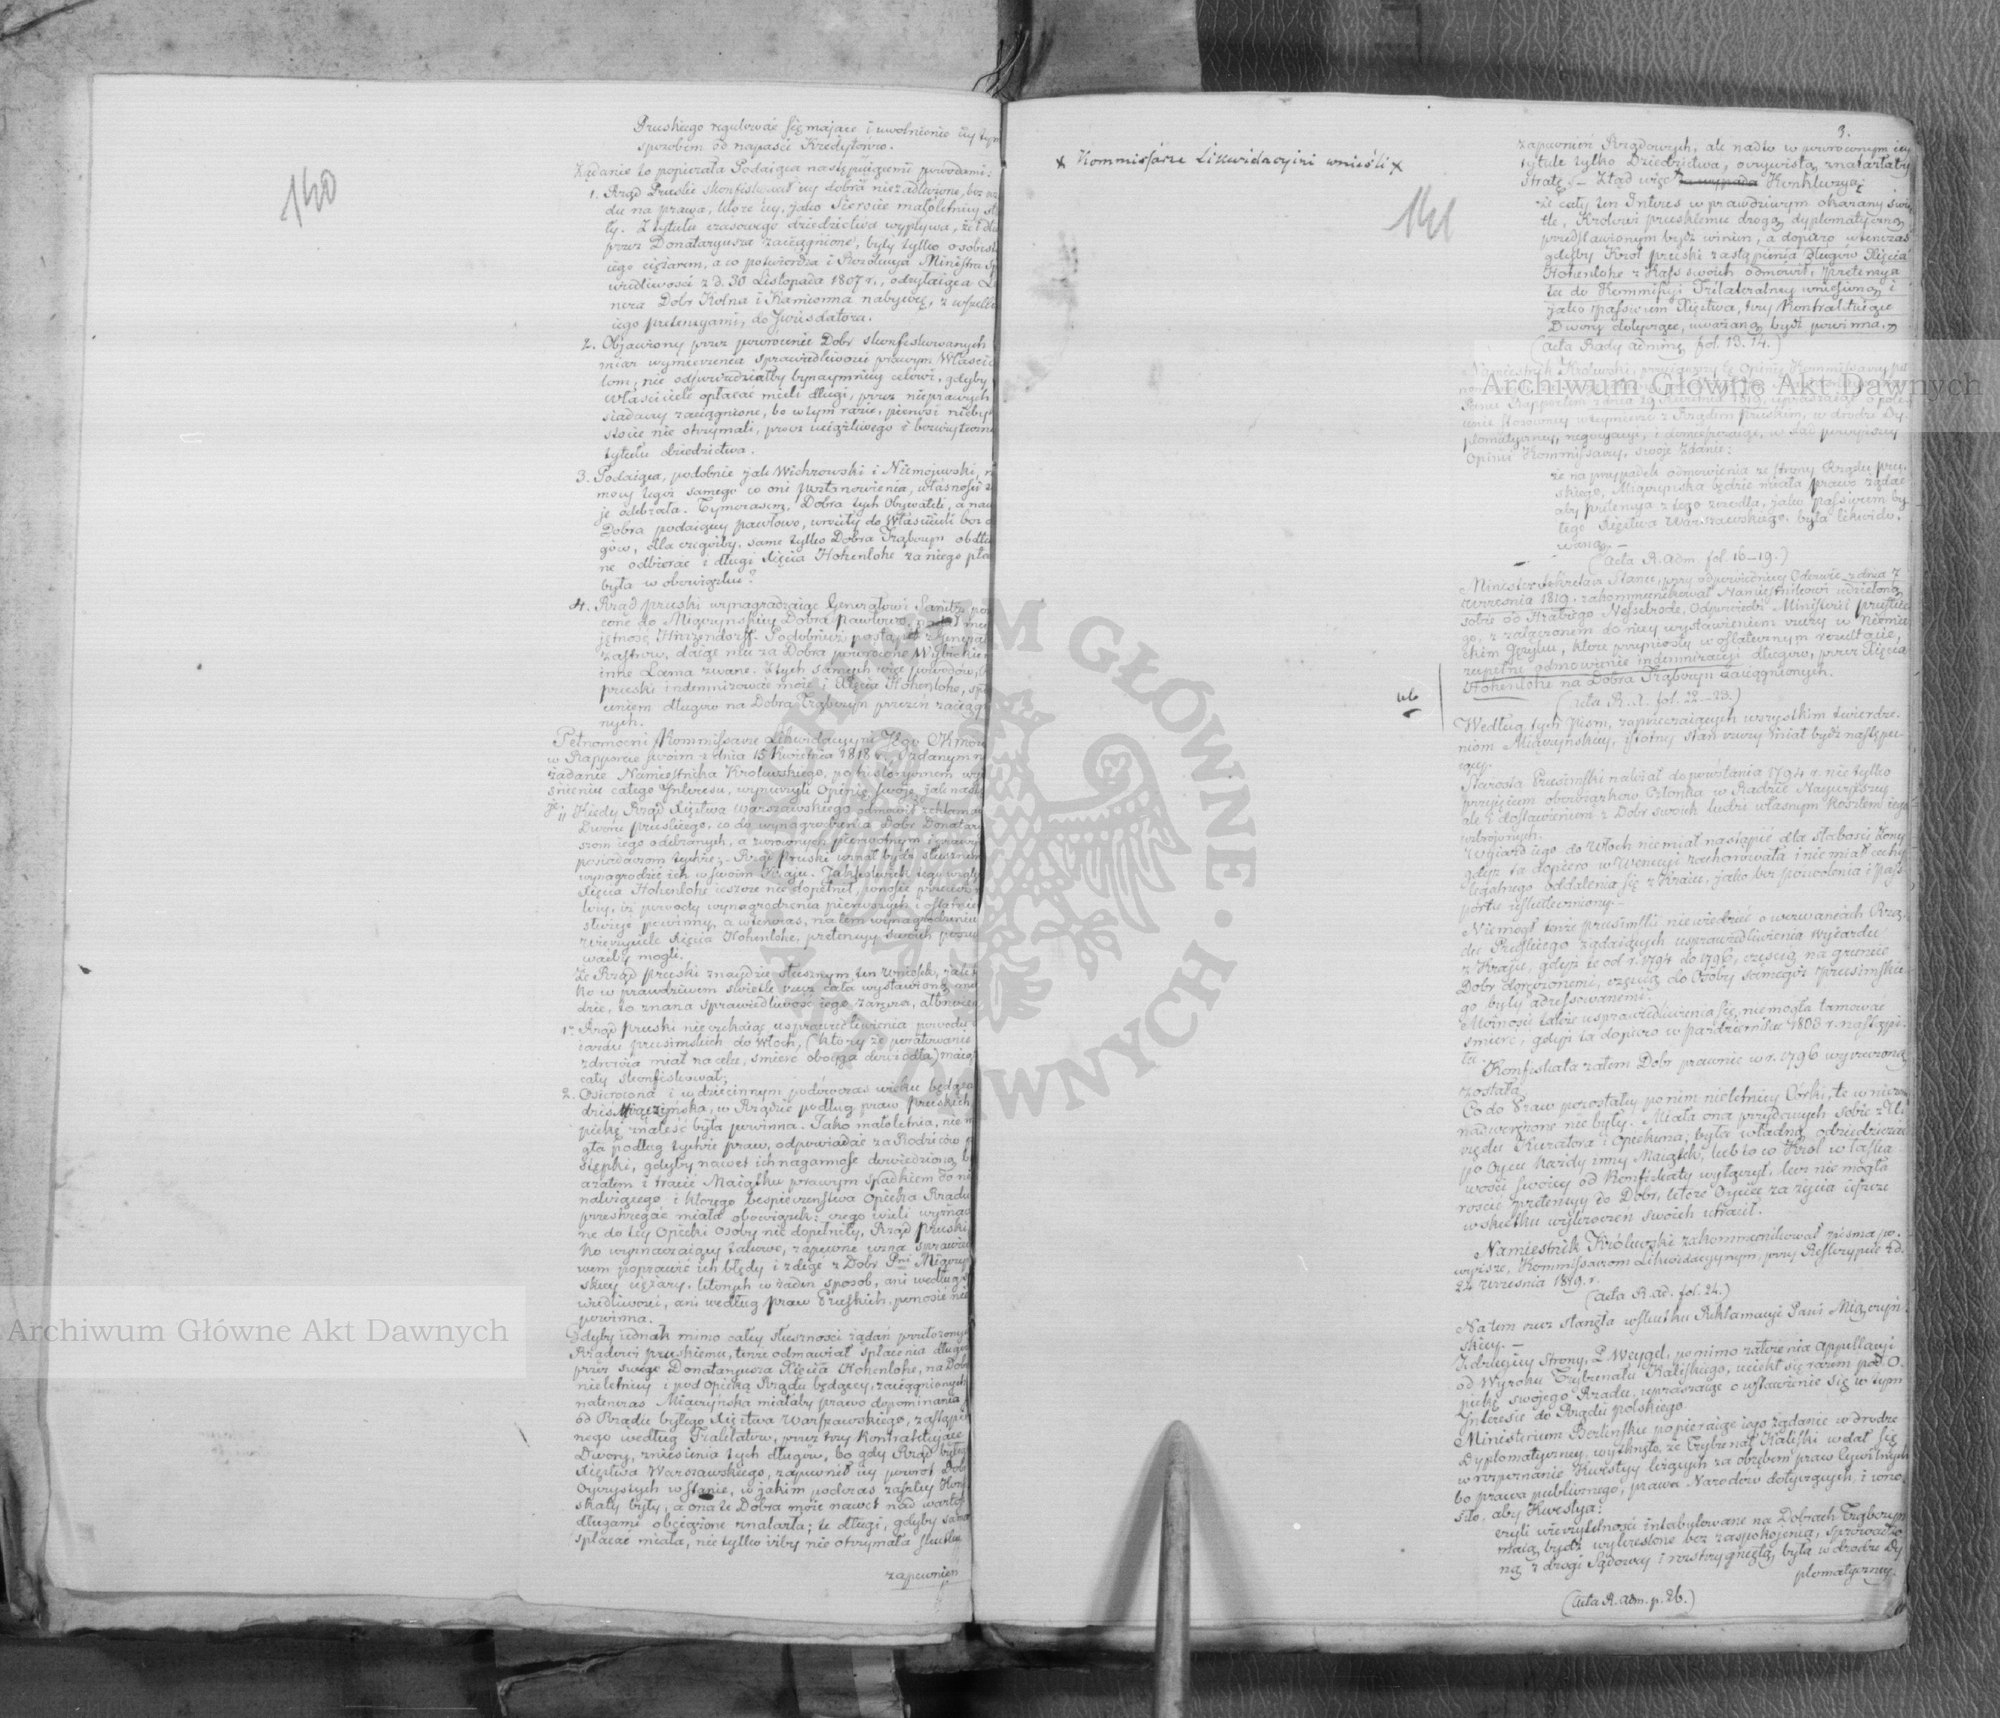 140
Pruskiego regulować się mające i uwolnienie iey tym
sposobem od napaści Kredytorów.
Żądanie to popierała Podaiąca następuiącemi powodami:
1. Rząd Pruski skonfiskował iey dobra nie zadłużone, bez
du na prawa, które iey, jako Sierocie małoletniey
ły. Z tytułu czasowego dziedzictwa wypływa, że
przez Donataryusza zaciągnione, były tylko osobist
iego ciężarem, a co potwierdza i Rezolucya Ministra Sp
wiedliwości z d. 30 Listopada 1807 r., odsyłaiąca
Dobr Kolna i Kamionna nabywcę, z wszelk
iego pretensyami, do Jurisdatora.
2. Objawiony przez powrócenie Dobr skonfiskowanych
miar wymierzenia sprawiedliwości prawym Właścic
lom, nie odpowiedziałby bynaymniey celowi, gdyby
Właściciele opłacać mieli długi, przez nieprawych
siadaczy zaciągnione, bo w tym razie, pierwsi nicby
stocie nie otrzymali, prócz uciążliwego i bezużyteczne
tytułu dziedzictwa.
3. Podaiąca, podobnie jak Wichrowski i Niemojewski,
mocy tegoż samego co oni postanowienia, własność
je odebrała. Tymczasem, Dobra tych Obywateli, a na
Dobra podaiącey Pawłowo, wróciły do Właścicieli bez
gów, dla czegóżby, same tylko Dobra Trąbczyn obdłu
ne odbierać i długi Xięcia Hohenlohe za niego pła
była w obowiązku?
4. Rząd pruski wynagradzaiąc Generałowi Sanitz
cone do Miączyńskiey Dobra Pawłowo,
jętność Hinzendorff. Podobnież postąpił z Generał
Zastrow, daiąc mu za Dobra powrócone Wybickie
inne Łama zwane. Z tych samych więc powodów,
pruski indemnizować może i Xięcia Hohenlohe,
ceniem długów na Dobra Trąbczyn przezeń zaciągn
nych.
Pełnomocni Kommissarze Likwidacyini
w Rapporcie swoim z dnia 15 Kwietnia 1818 r. Podanym
żądanie Namiestnika Królewskiego, po historycznem wy
śnieniu całego Interesu, wynurzyli Opinię swoię jak nast
Kiedy Rząd Xięstwa Warszawskiego odmówił reklama
Dworu pruskiego, co do wynagrodzenia Dobr Donatar
szom iego odebranych, a zwróconych pierwotnym i praw
posiadaczom tychże; Rząd Pruski uznał bydź słusznem
wynagrodzić ich w swoim Kraju. Jakkolwiek tego wzgl
Xięcia Hohenlohe ieszcze nie dopełnił,
stużyć powinny, a wówczas, na tem wynagrodzeniu
Wierzyciele Xięcia Hohenlohe, pretensyi swoich poszu
wać by mogli.
Że Rząd pruski znaydzie słusznym ten wniosek,
ko w prawdziwem świetle rzecz cała wystawioną
dzie, to znana sprawiedliwość iego
1° Rząd pruski nie czekaiąc usprawiedliwienia powodu
iazdu prusimskich do Włoch, (który że poratowanie
zdrowia miał na celu, śmierć oboyga dowiodła)
cały skonfiskował;
2. Osierocona i w dziecinnym podówczas wieku będąca
dziś Miączyńska, w Rządzie podług praw pruskich
piekę znaleść była powinna. Jako małoletnia, nie
gła podług tychże praw, odpowiadać za Rodziców
stępki, gdyby nawet ich naganność dowiedzioną
a zatem i tracić Maiątku prawym spadkiem do ni
należącego i którego bezpieczeństwa Opieka Rządu
przestrzegać miała obowiązek; czego ieżeli wyznac
ne do tey Opieki Osoby nie dopełniły, Rząd pruski
ko wyznaczaiący takowe, zapewne uzna
wem poprawić ich błędy i zdiąć z Dobr Pni Miączyń
skiey ciężary, których w żaden sposób, ani według
wiedliwości, ani według praw Pruskich, ponosić nie
powinna.
Gdyby iednak mimo całey słuszności żądań przełożonych
Rządowi pruskiemu, tenże odmawiał spłacenia długów
przez swego Donataryusza Xięcia Hohenlohe, na Dobra
nieletniey i pod Opieką Rządu będącey, zaciągnionych
natenczas Miączyńska miałaby prawo dopominania
od Rządu byłego Xięstwa Warszawskiego, zastąpio
nego według Traktatów, przez trzy Kontraktujące
Dwory, zniesienia tych długów, bo gdy Rząd byłego
Xięstwa Warszawskiego, zapewnił iey powrót Dobr
Oyczystych w stanie, w jakim podczas zaszłey Konf
skaty były, a ona te Dobra może nawet nad wartość
długami obciążone znalazła; te długi, gdyby sama
spłacać miała, nie tylko żeby nie otrzymała skutku
zapewnień
x Kommissarze Likwidacyini wnieśli x
141
3.
zapewnień Rządowych, ale nadto w powróconym iey
tytule tylko Dziedzictwa, oczywistą znalazłaby
stratę. – Ztąd więc Konkluzya:
że cały ten Interes w prawdziwym okazany świe
tle, Królowi pruskiemu drogą dyplomatyczną
przedstawionym bydź winien, a dopiero wtenczas
gdyby Król pruski zastąpienia długów Xięcia
Hohenlohe z Kass swoich odmówił, pretensya
ta do Kommissyi Trilateralney wniesioną i
jako Passivum Xięstwa, trzy Kontraktuiące
Dwory dotyczące, uważaną bydź powinna.
(Acta Rady Admin. fol. 13. 14.)
Namiestnik Królewski, przyiąwszy tę Opinię Kommissarzy
Rapportem z dnia 29 Kwietnia 1819, upraszaiąc o pole
cenie stosowney w tymmierze z Rządem pruskim, w drodze Dy
plomatyczney, negocyacyi, i domieszczaiąc, w ślad powyższey
Opinii Kommissarzy, swoje Zdanie:
że na przypadek odmówienia ze strony Rządu pru
skiego, Miączyńska będzie miała prawo żądać
aby pretensya z tego źrzódła, jako passivum by
łego Xięstwa Warszawskiego, była likwido
waną. –
(Acta R. Adm. fol. 16–19.)
Minister Sekretarz Stanu, przy odpowiedniey Odezwie z dnia 7
Września 1819. zakommunikował Namiestnikowi udzieloną
sobie od Hrabiego Nesselrode, Odpowiedź Ministra pruskie
go, z załączonem do niey wystawieniem rzeczy w Niemie
ckim Języku, które przyniosły w ostatecznym rezultacie,
zupełne odmówienie indemnizacyi długów, przez Xięcia
Hohenlohe na Dobra Trąbczyn zaciągnionych.
(Acta R. A. fol. 22–23.)
Według tych pism, zaprzeczaiących wszystkim twierdze
niom Miączyńskiey, istotny stan rzeczy miał bydź następu
iący.
Starosta Prusimski należał do powstania 1794 r. nie tylko
przyięciem obowiązków Członka w Radzie Naywyższey
ale i dostawieniem z Dobr swoich ludzi własnym kosztem iego
uzbroionych.
Wyiazd iego do Włoch nie miał nastąpić dla słabości żony
gdyż ta dopiero w Wenecyi zachorowała i nie miał cechy
legalnego oddalenia się z Kraiu, jako bez pozwolenia i pasz
portu uskuteczniony. –
Niemógł tenże prusimski niewiedzieć o wezwaniach Rzą
du Pruskiego żądaiących usprawiedliwienia wyiazdu
z Kraiu, gdyż te od r. 1794 do 1796, częścią na gruncie
Dobr doręczonemi, częścią do Osoby samegoż prusimskie
go były adressowanemi.
Możności także usprawiedliwienia się, niemogła tamować
śmierć, gdyż ta dopiero w październiku 1803 r. nastąpi
ła.
Konfiskata zatem Dobr prawnie w r. 1796 wyrzeczoną
została.
Co do Praw pozostałey po nim nieletniey Córki, te w niczem
nadwerężone nie były. Miała ona przydanych sobie z U
rzędu Kuratora i Opiekuna, była władną odziedziczać
po Oycu każdy inny Maiątek, lub to co Król w łaska
wości swoiey od Konfiskaty wyłączył, lecz nie mogła
rościć pretensyi do Dobr, które Oyciec za życia ieszcze
w skutku wykroczeń swoich utracił.
Namiestnik Królewski zakommunikował pisma po
wyższe, Kommissarzom Likwidacyinym, przy Reskrypcie z d.
24 Września 1819. r.
(Acta R. Ad. fol. 24.)
Na tem rzecz stanęła w skutku Reklamacyi Pani Miączyń
skiey. –
Z drugiey strony, P. Weygel, pomimo założenia Appellacyi
od Wyroku Trybunału Kaliskiego, uciekł się razem pod O
piekę swojego Rządu, upraszaiąc o wstawienie się w tym
Interesie do Rządu polskiego.
Ministerium Berlińskie popieraiąc iego żądanie w drodze
Dyplomatyczney, wytknęło, że Trybunał Kaliski wdał się
w rozpoznanie Kwestyi leżących za obrębem praw Cywilnych
bo prawa publicznego, prawa Narodów dotyczących, i wno
siło, aby Kwestya:
czyli wierzytelności intabulowane na Dobrach Trąbczyn
maią bydź wykreślone bez zaspokoienia, sprowadzo
ną z drogi Sądowey i rozstrzygniętą była w drodze Dy
plomatyczney.
(Acta R. Adm. p. 26.)
Archiwum Główne Akt Dawnych
Archiwum Główne Akt Dawnych